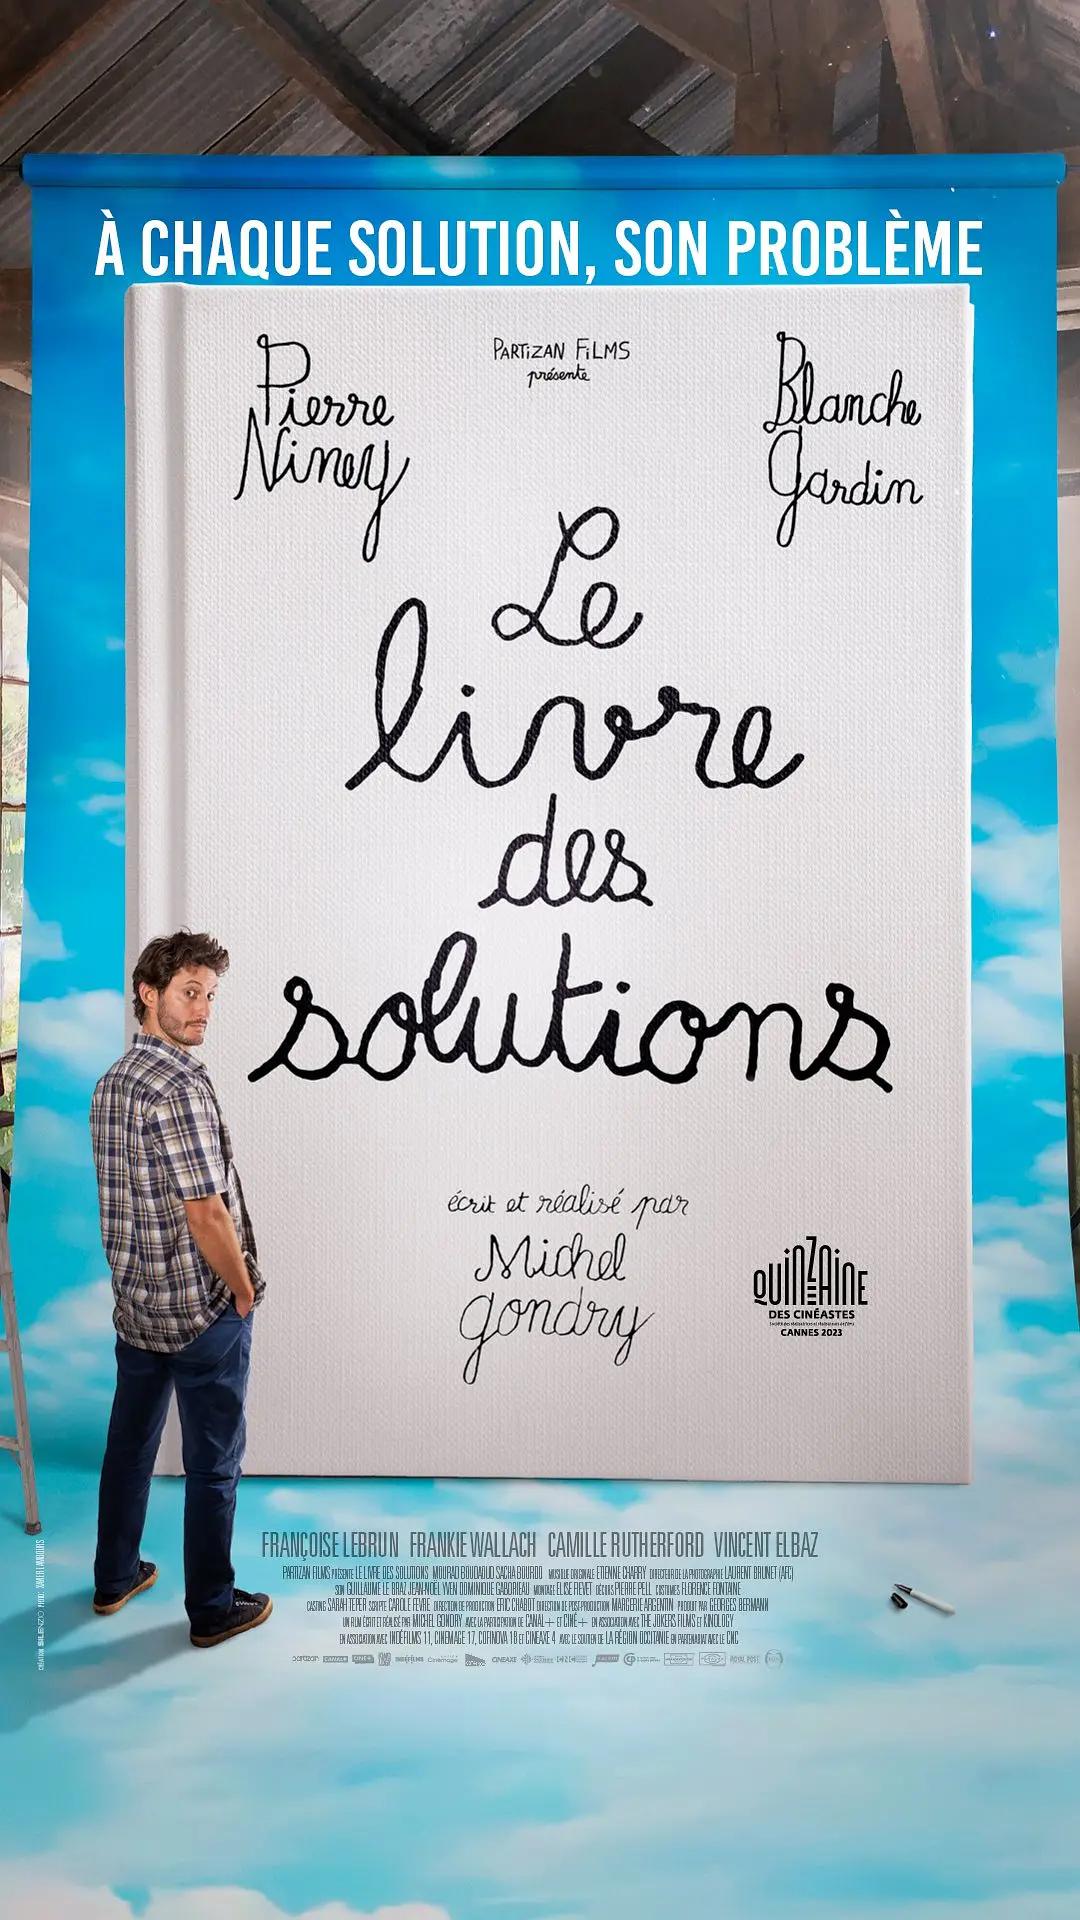 À CHAQUE SOLUTION, SON PROBLÈME
Pierre
Niney
PARTiZAN FiLMS
présente
Blanche
Gardin
Le
livre
des
solutions
écrit et réalisé par
Michel
Gondry
QUINZAINE
DES CINÉASTES
CANNES 2023
FRANÇOISE LEBRUN FRANKIE WALLACH CAMILLE RUTHERFORD VINCENT ELBAZ
PARTIZAN FILMS PRÉSENTE LE LIVRE DES SOLUTIONS MOURAD BOUDAOUD SACHA BOURDO MUSIQUE ORIGINALE ETIENNE CHARRY DIRECTEUR DE LA PHOTOGRAPHIE LAURENT BRUNET (AFC)
SON GUILLAUME LE BRAZ JEAN-NOËL YVEN DOMINIQUE GABORIEAU MONTAGE ELISE FIEVET DÉCORS PIERRE PELL COSTUMES FLORENCE FONTAINE
CASTING SARAH TEPER SCRIPTE CAROLE FEVRE DIRECTION DE PRODUCTION ERIC CHABOT DIRECTION DE POST-PRODUCTION MARGERIE ARGENTIN PRODUIT PAR GEORGES BERMANN
UN FILM ÉCRIT ET RÉALISÉ PAR MICHEL GONDRY AVEC LA PARTICIPATION DE CANAL+ ET CINÉ+ EN ASSOCIATION AVEC THE JOKERS FILMS ET KINOLOGY
EN ASSOCIATION AVEC INDÉFILMS 11, CINEMAGE 17, COFINOVA 18 ET CINEAXE 4 AVEC LE SOUTIEN DE LA RÉGION OCCITANIE EN PARTENARIAT AVEC LE CNC